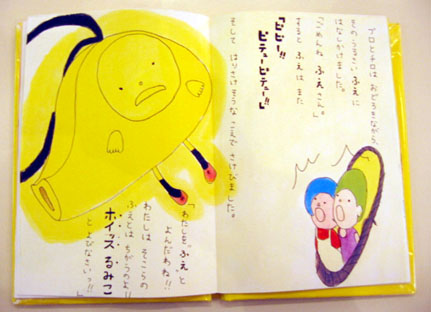 プロとチロは おどろきながら
そのうるさい ふえに
はなしかけました。
「ごめんね ふえさん。」
すると ふえは また
「ピピー!!
ピチューピチュー!!」
そして はりさけそうな こえで さけびました。
「わたしを"ふえ"と
よんだわね!!
わたしは そこらの
ふえとは ちがうのよ!!
ホイッスるみこ
とよびなさいっ!!」